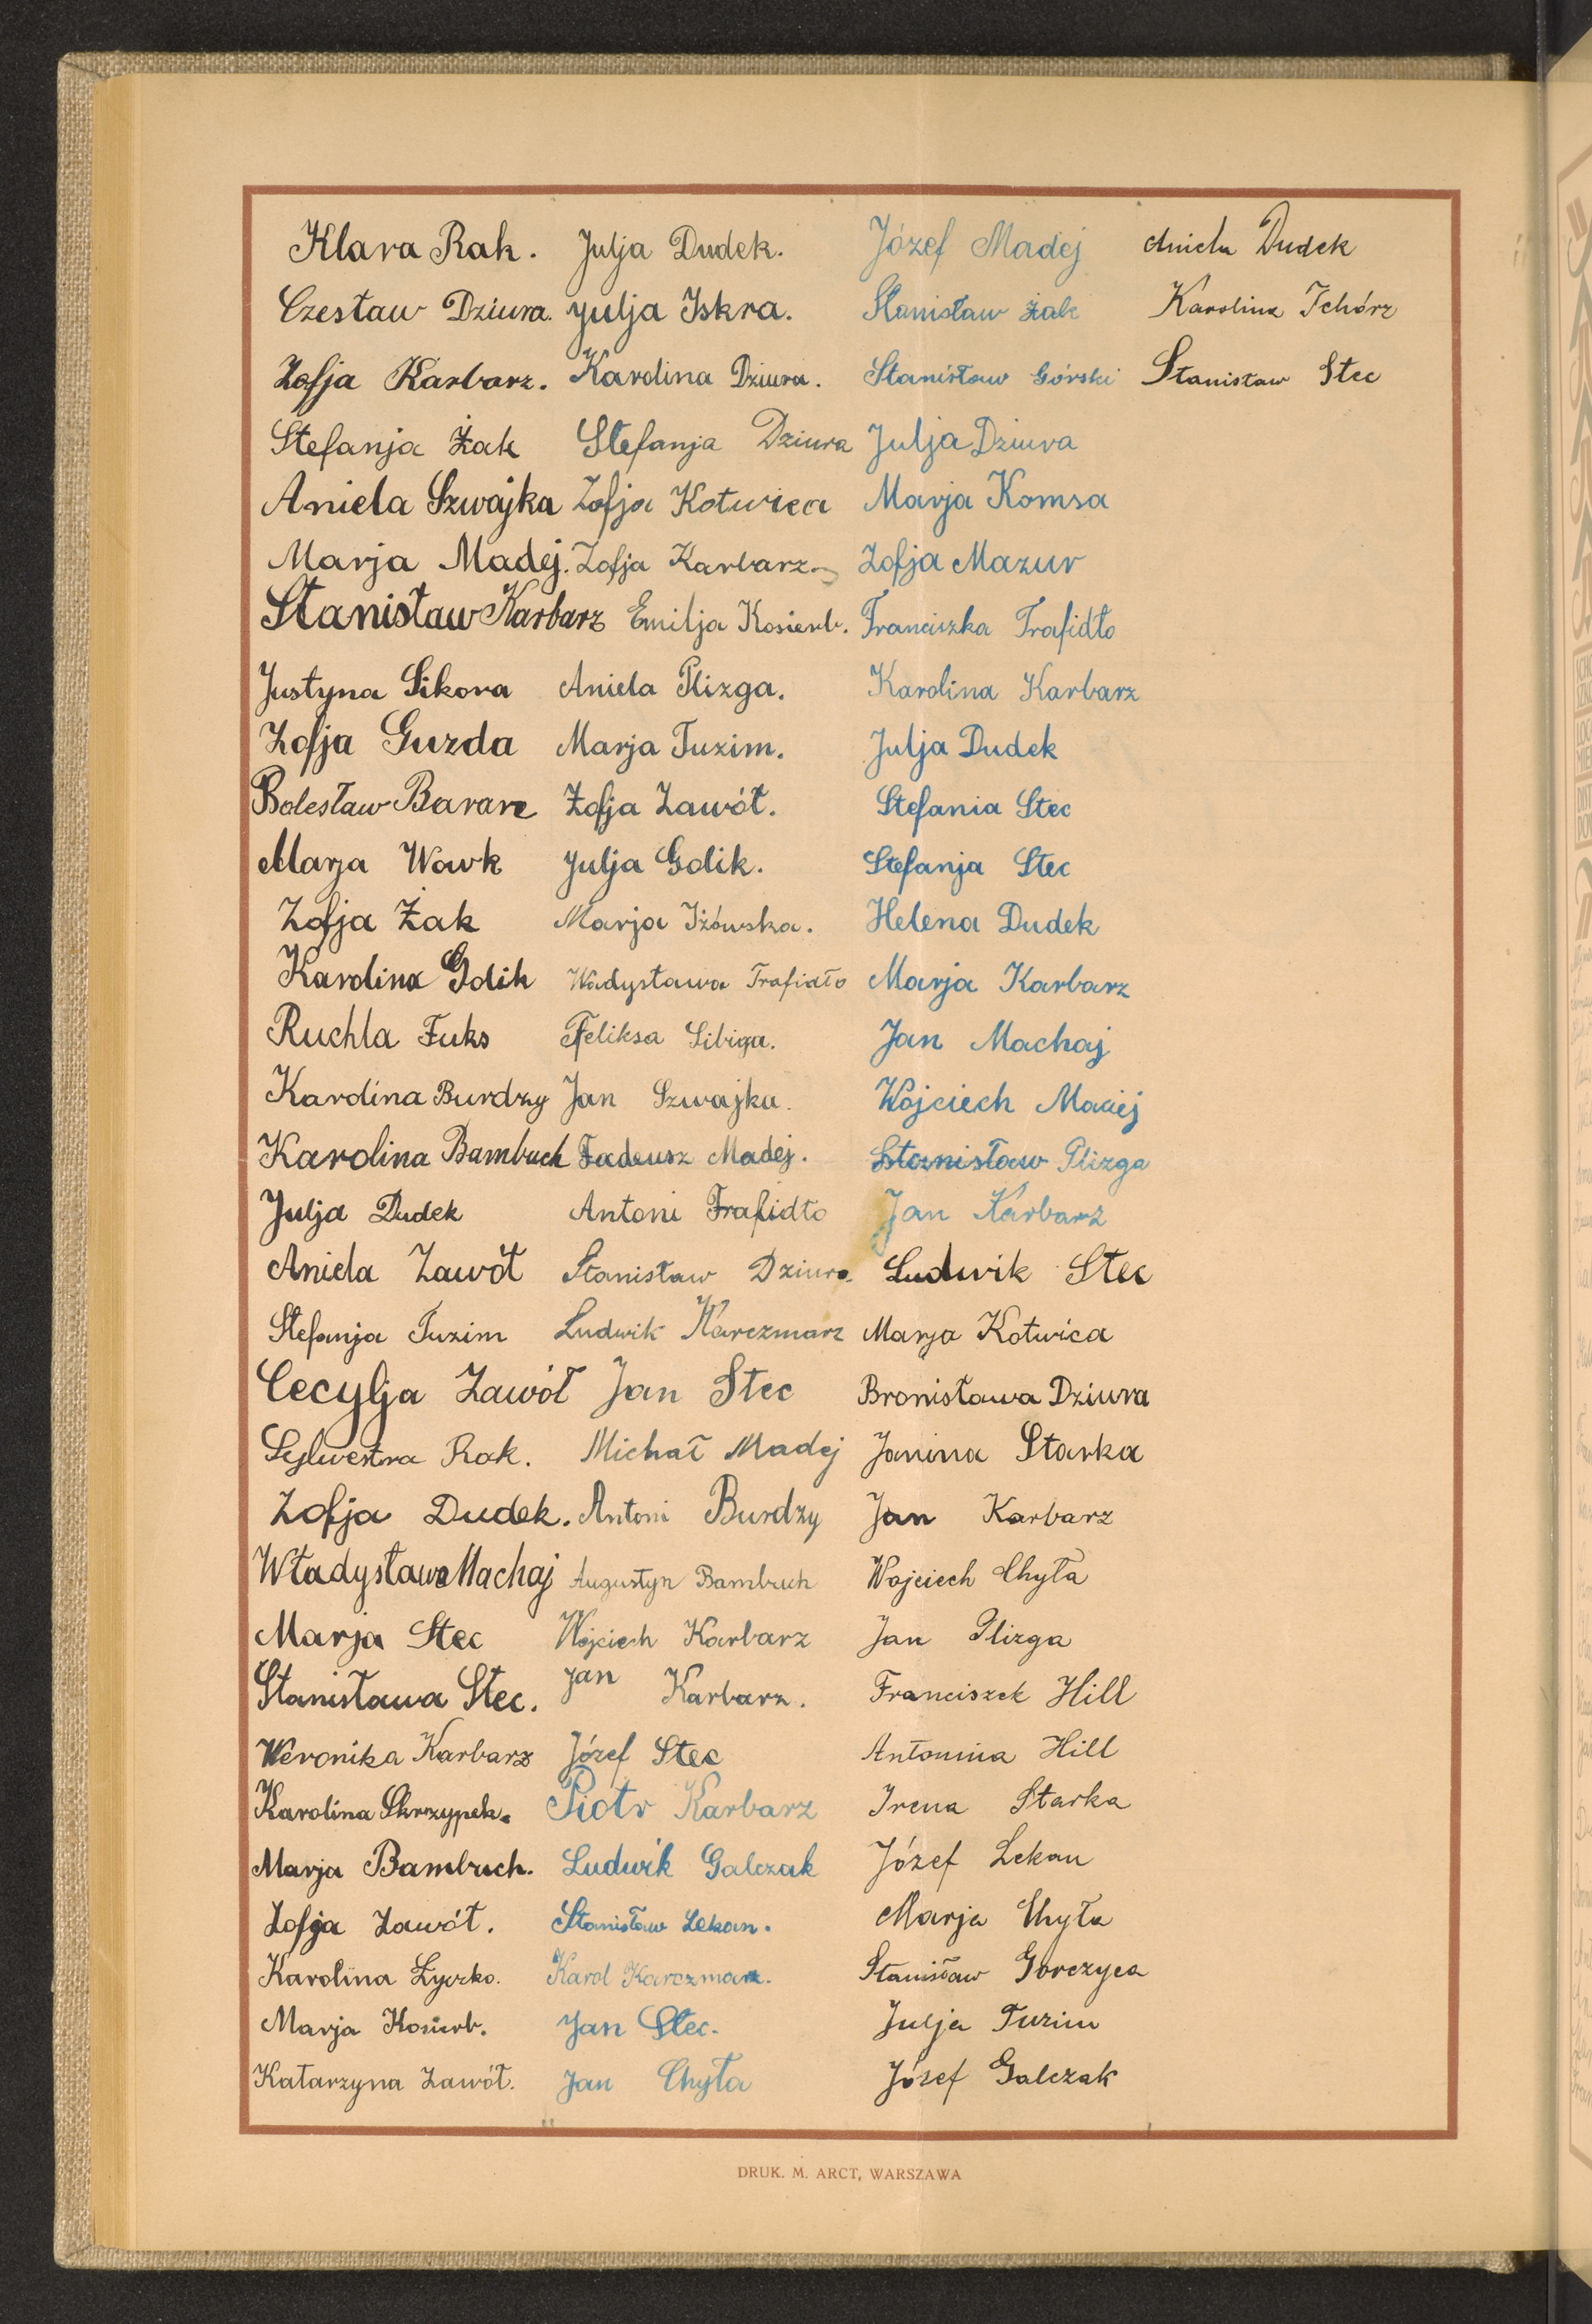 Klara Rak. Julja Dudek. Józef Madej Aniela Dudek
Czesław Dziura. Julja Iskra. Stanisław Żak Karolina Tchórz
Zofja Karbarz. Karolina Dziura. Stanisław Górski Stanisław Stec
Stefanja Żak Stefanja Dziura Julja Dziura
Aniela Szwajka Zofja Kotwica Marja Komsa
Marja Madej. Zofja Karbarz. Zofja Mazur
Stanisław Karbarz Emilja Kosierb. Franciszka Trafidło
Justyna Sikora Aniela Plizga. Karolina Karbarz
Zofja Guzda Marja Tuzim. Julja Dudek
Bolesław Baran Zofja Zawół. Stefania Stec
Marja Wowk Julja Golik. Stefanja Stec
Zofja Żak Marja Iżowska. Helena Dudek
Karolina Golik Władysława Trafidło Marja Karbarz
Ruchla Fuks Feliksa Sibiga. Jan Machaj
Karolina Burdzy Jan Szwajka. Wojciech Maciej
Karolina Bambuch Tadeusz Madej. Stanisław Plizga
Julja Dudek Antoni Trafidło Jan Karbarz
Aniela Zawół Stanisław Dziura. Ludwik Stec
Stefanja Tuzim Ludwik Karczmarz Marja Kotwica
Cecylja Zawół Jan Stec Bronisława Dziura
Sylwestra Rak. Michał Madej Janina Starka
Zofja Dudek. Antoni Burdzy Jan Karbarz
Władysława Machaj Augustyn Bambuch Wojciech Chyła
Marja Stec Wojciech Karbarz Jan Plizga
Stanisława Stec. Jan Karbarz. Franciszek Hill
Weronika Karbarz Józef Stec Antonina Hill
Karolina Skrzypek. Piotr Karbarz Irena Starka
Marja Bambuch. Ludwik Galczak Józef Lekan
Zofja Zawół. Stanisław Lekan. Marja Chyła
Karolina Łyczko. Karol Karczmarz. Stanisław Gorczyca
Marja Kosierb. Jan Stec. Julja Tuzim
Katarzyna Zawół. Jan Chyła Józef Galczak
DRUK. M. ARCT, WARSZAWA